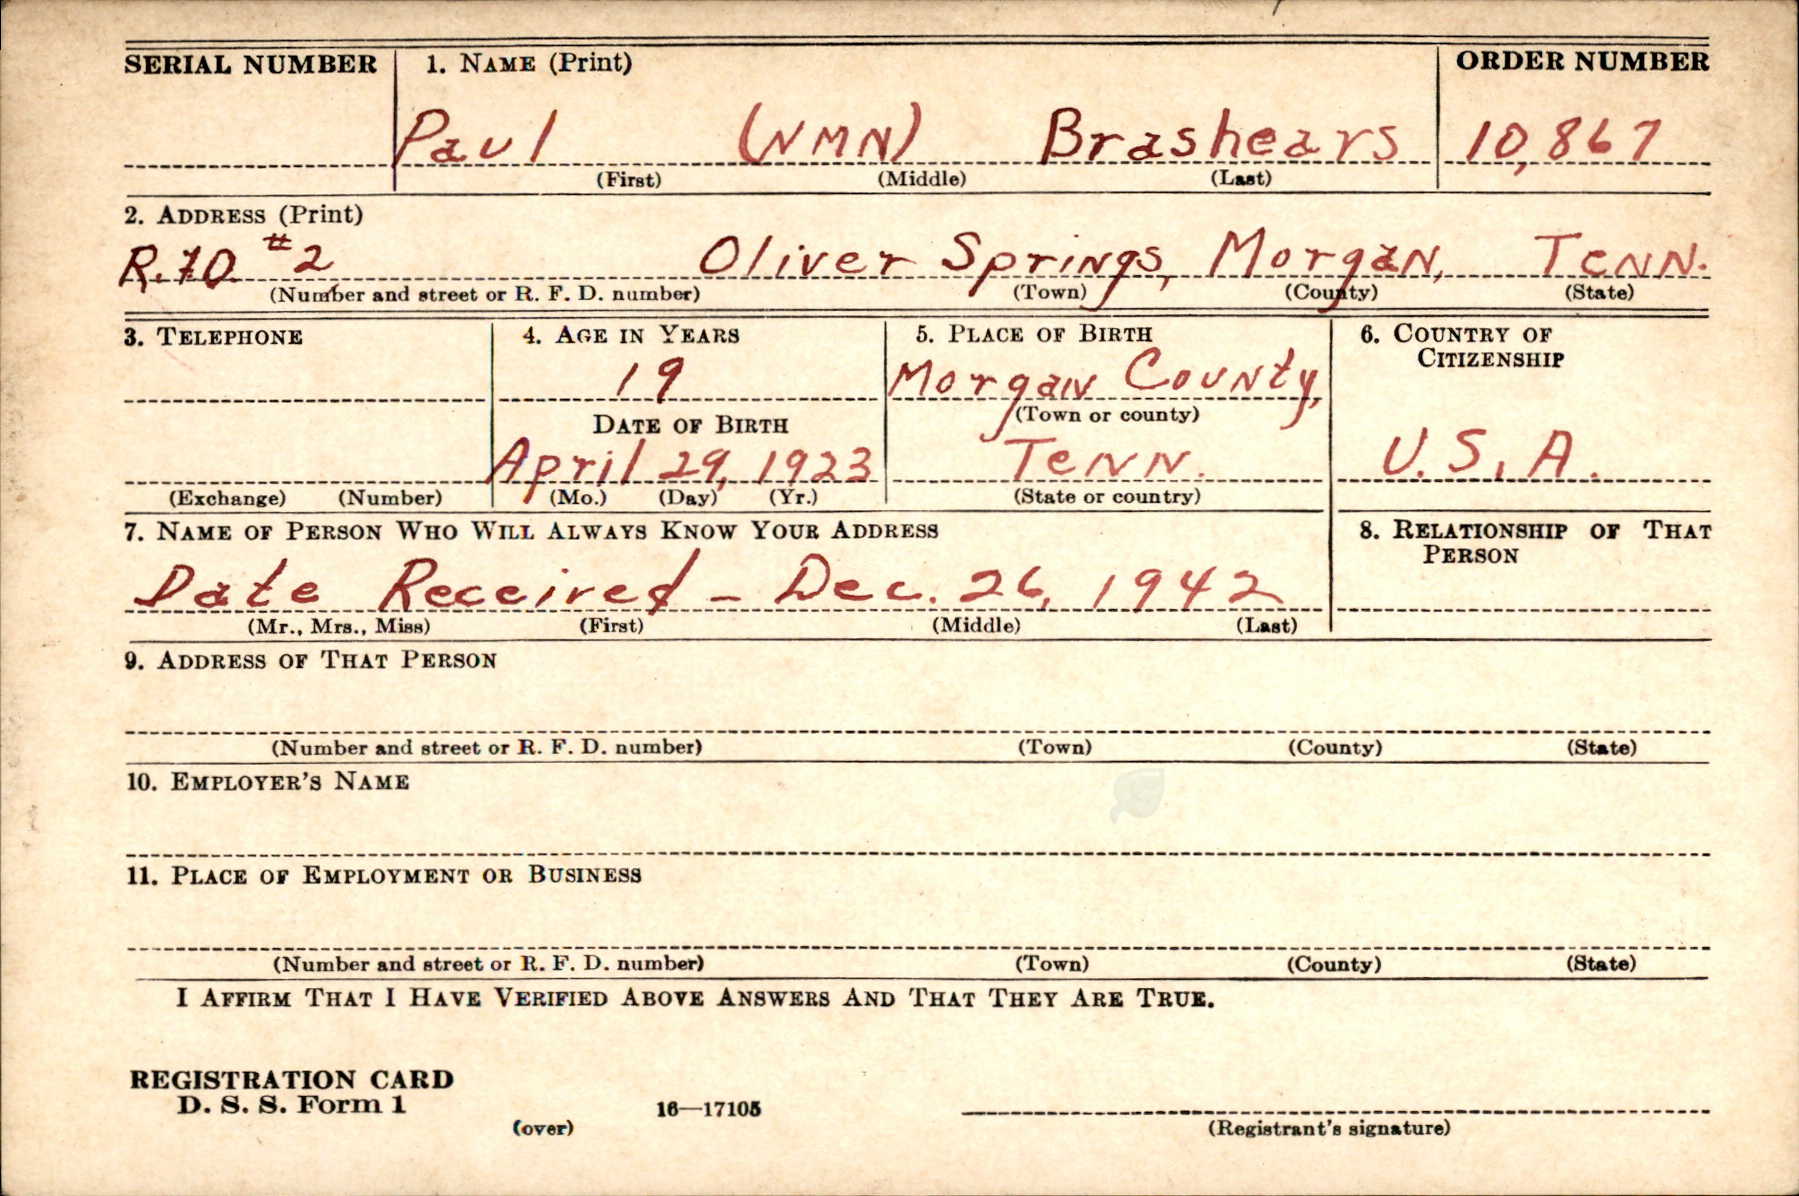 SERIAL NUMBER 1. NAME (Print) ORDER NUMBER
Paul (NMN) Brashears 10,867
(First) (Middle) (Last)
2. ADDRESS (Print)
R.F.D. #2 Oliver Springs, Morgan, Tenn.
(Number and street or R. F. D. number) (Town) (County) (State)
3. TELEPHONE 4. AGE IN YEARS 5. PLACE OF BIRTH 6. COUNTRY OF
CITIZENSHIP
19 Morgan County,
DATE OF BIRTH (Town or county)
April 29, 1923 Tenn. U.S.A.
(Exchange) (Number) (Mo.) (Day) (Yr.) (State or country)
7. NAME OF PERSON WHO WILL ALWAYS KNOW YOUR ADDRESS 8. RELATIONSHIP OF THAT
PERSON
Date Received - Dec. 26, 1942
(Mr., Mrs., Miss) (First) (Middle) (Last)
9. ADDRESS OF THAT PERSON
(Number and street or R. F. D. number) (Town) (County) (State)
10. EMPLOYER'S NAME
11. PLACE OF EMPLOYMENT OR BUSINESS
(Number and street or R. F. D. number) (Town) (County) (State)
I AFFIRM THAT I HAVE VERIFIED ABOVE ANSWERS AND THAT THEY ARE TRUE.
REGISTRATION CARD
D. S. S. Form 1 16—17105
(over) (Registrant's signature)